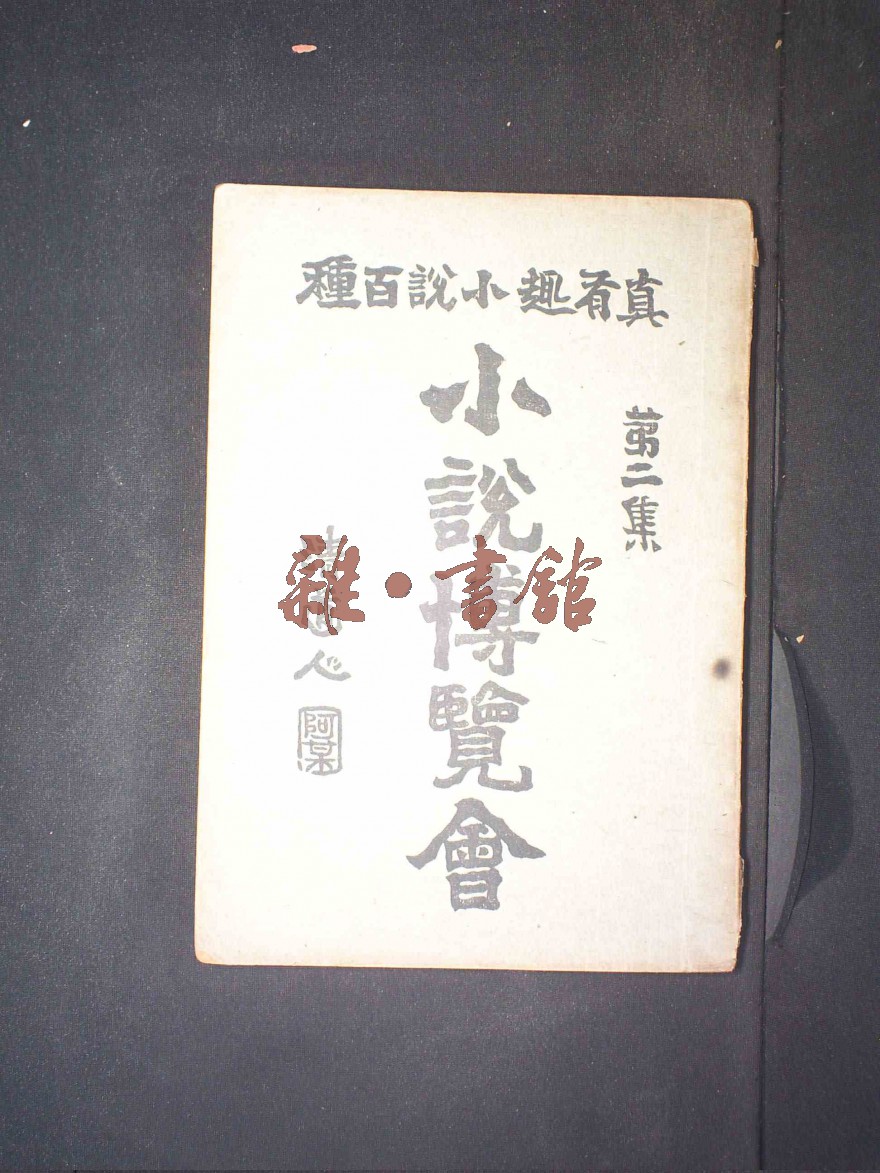 真有趣小說百種
第二集
小說博覽會
人
阿某
雜·書館